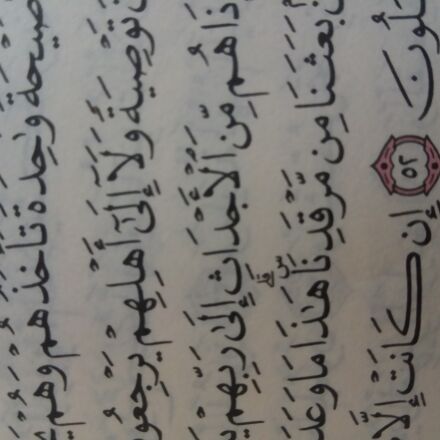 صَيْحَةً وَٰحِدَةً تَأْخُذُهُمْ وَهُمْ
تَوْصِيَةً وَلَآ إِلَىٰٓ أَهْلِهِمْ يَرْجِعُو
ذَا هُم مِّنَ ٱلْأَجْدَاثِ إِلَىٰ رَبِّهِمْ
بَعَثَنَا مِن مَّرْقَدِنَاۜۗ هَٰذَا مَا وَعَدَ
لُونَ ٥٢ إِن كَانَتْ إِلَّا